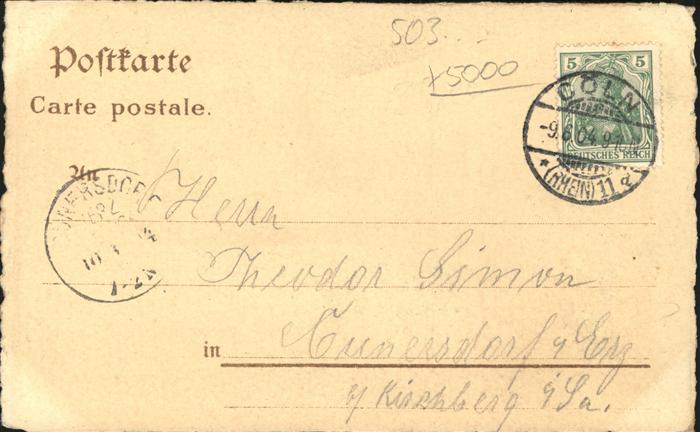 503...
Postkarte
+5000
Carte postale.
5 5
DEUTSCHES REICH
CÖLN
-9.6.04.9
* (RHEIN) 11
An
Herrn
Theodor Simon
in Cunersdorf i/Erz
b/ Kirschberg i/Sa.